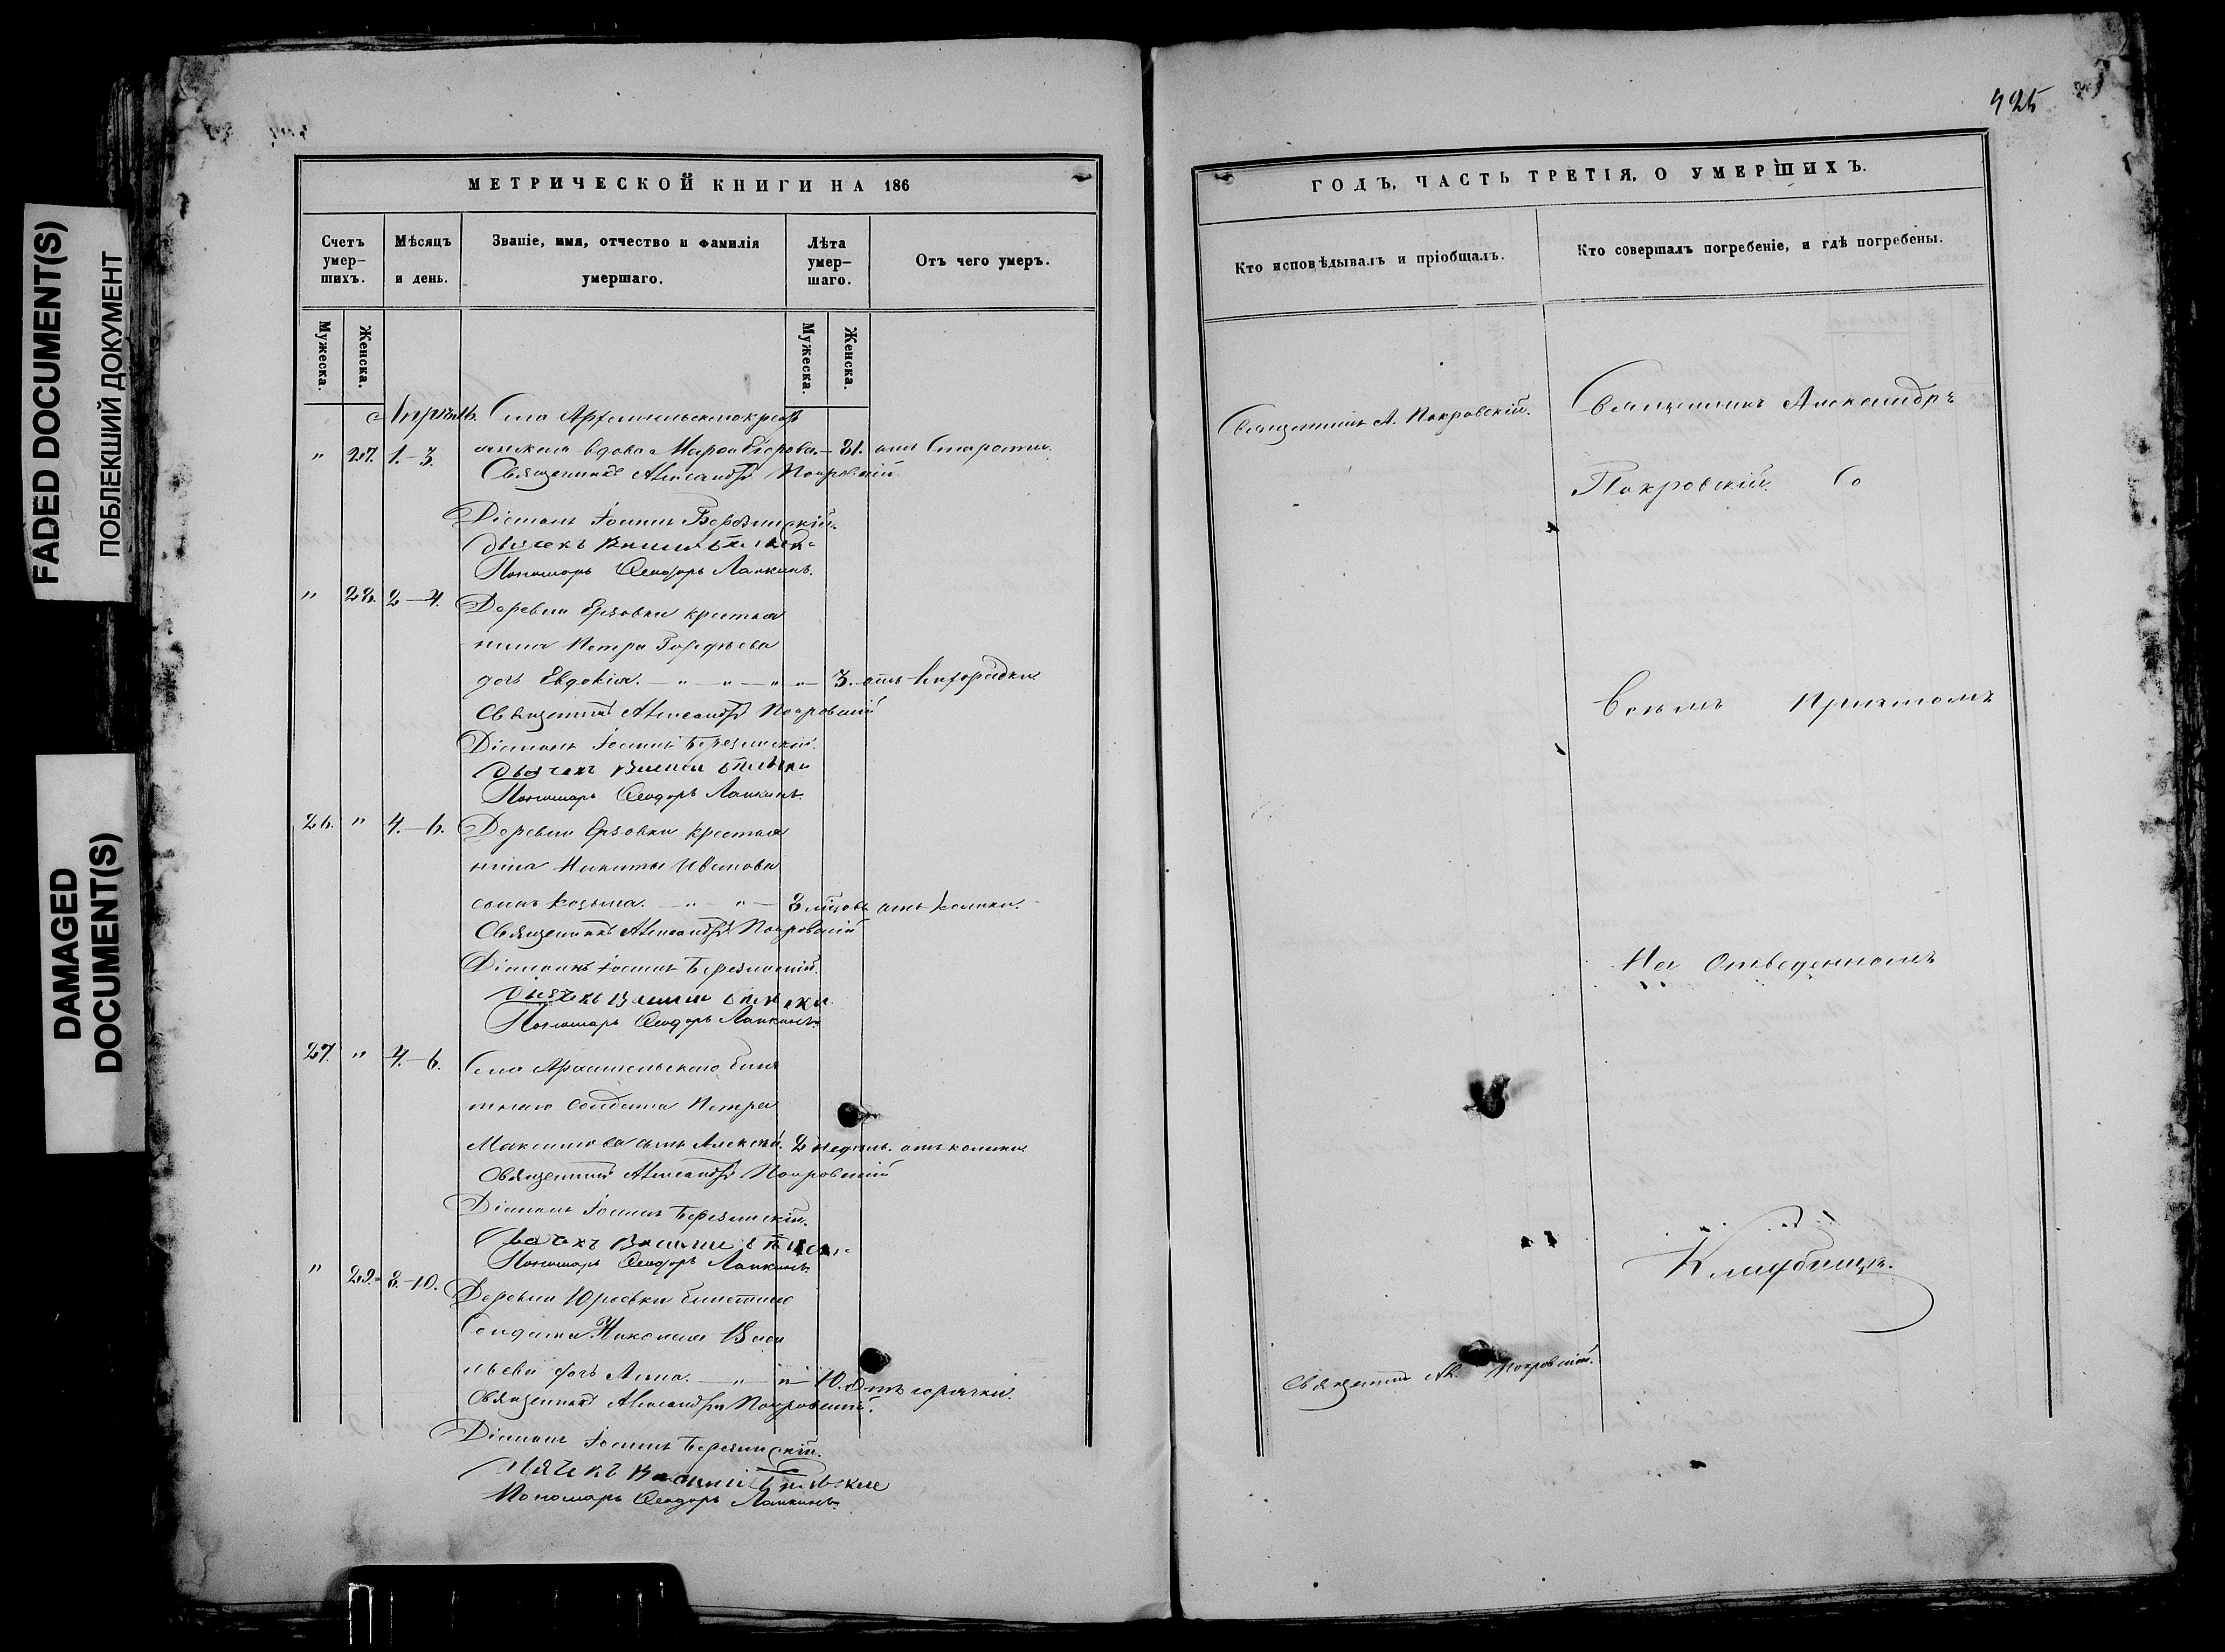 FADED DOCUMENT(S)
ПОБЛЕКШИЙ ДОКУМЕНТ
DAMAGED
DOCUMENT(S)
МЕТРИЧЕСКОЙ КНИГИ НА 186
Счетъ умер-шихъ.
Мѣсяцъ и день.
Званіе, имя, отчество и фамилія умершаго.
Лѣта умер-шаго.
Отъ чего умеръ.
Мужеска.
Женска.
Мужеска.
Женска.
Апрѣль. Села Архангельскаго крестъ
" 27. 1.-3. янская вдова Марѳа Егорова.- 81. отъ Старости.
Священникъ Александръ Покровскій
Діаконъ Іоаннъ Березинскій.
Дьячекъ
Пономарь Ѳеодоръ Лапкинъ.
" 28. 2-4. Деревни Ерзовки крестья
нина Петра
дочь Евдокія. - " - " - " " - 3. отъ Лихорадки
Священникъ Александръ Покровскій
Діаконъ Іоаннъ Березинскій.
Дьячекъ
Пономарь Ѳеодоръ Лапкинъ.
26. " 4.-6. Деревни Ерзовки крестья
нина Никиты Иванова
сынъ Козьма. - " - " - 8 мѣсяцовъ отъ колики.
Священникъ Александръ Покровскій
Діаконъ Іоаннъ Березинскій.
Дьячекъ
Пономарь Ѳеодоръ Лапкинъ.
27. " 4.-6. Села Архангельскаго биле
тнаго Солдата Петра
Максимова сынъ Алексѣй. 2 недѣль. отъ колики
Священникъ Александръ Покровскій
Діаконъ Іоаннъ Березинскій.
Дьячекъ
Пономарь Ѳеодоръ Лапкинъ.
" 29. 8.-10. Деревни Юрьевки билетнаго
Солдата Николая Васи
льева дочь Анна. - " - " - 10. Отъ горячки.
Священникъ Александръ Покровскій.
Діаконъ Іоаннъ Березинскій.
Дьячекъ
Пономарь Ѳеодоръ Лапкинъ.
425
ГОДЪ, ЧАСТЬ ТРЕТІЯ, О УМЕРШИХЪ.
Кто исповѣдывалъ и пріобщалъ.
Кто совершалъ погребеніе, и гдѣ погребены.
Священникъ А. Покровскій.
Священникъ Александръ
Покровскій Со
Всѣмъ Причтомъ
На Отведенномъ
Кладбищѣ.
Священникъ Ал. Покровскій.